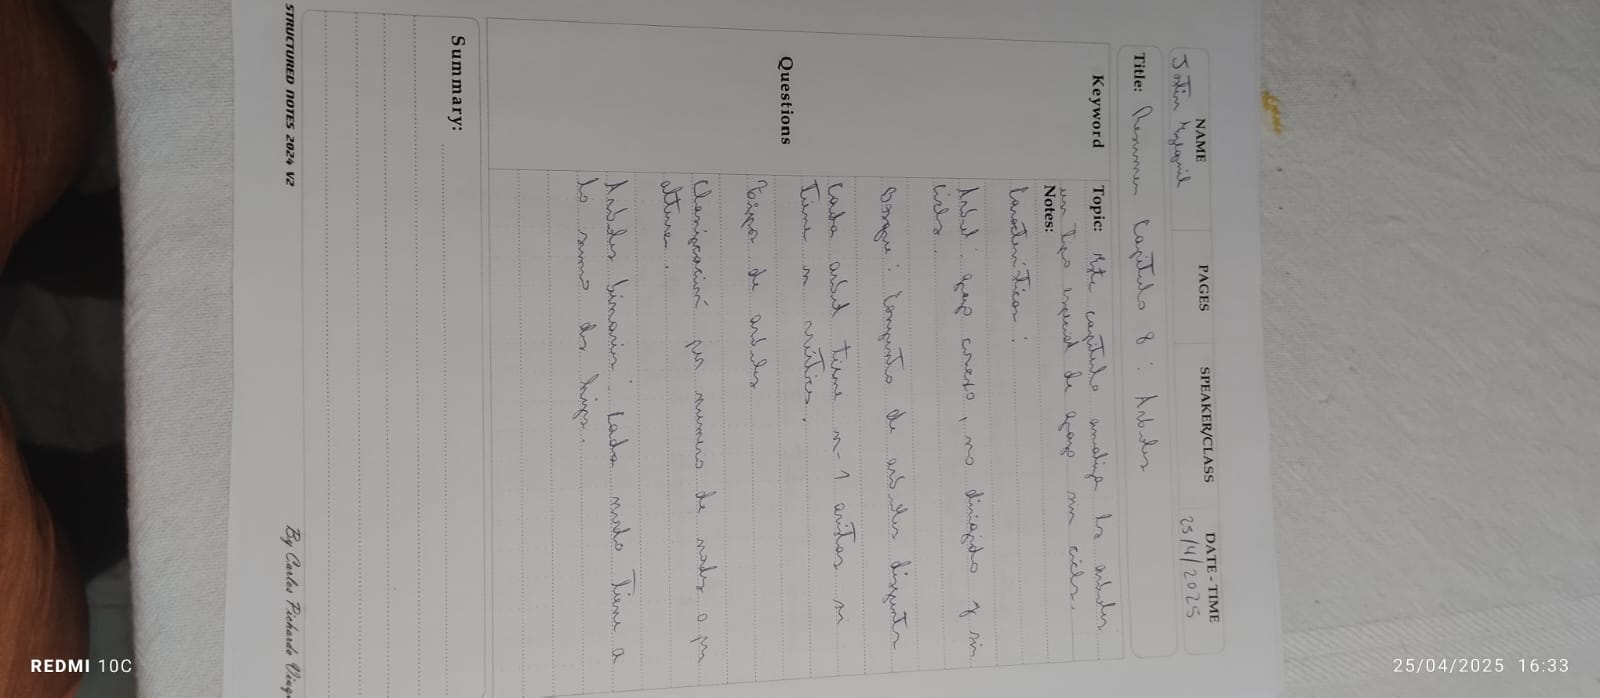 NAME PAGES SPEAKER/CLASS DATE - TIME
25/4/2025
Title: Resumen Capitulo 8 : Arboles
Keyword
Topic: Este capitulo analiza los arboles
un tipo especial de grafo sin ciclos.
Notes:
Caracteristicas :
Arbol : grafo conexo, no dirigido y sin
ciclos.
Bosque : Conjunto de arboles disjuntos
Cada arbol tiene n-1 aristas si
tiene n vértices.
Questions
Tipos de arboles
Clasificación por numero de nodos o por
altura.
Arboles binarios : Cada nodo tiene a
lo sumo dos hijos.
Summary:
STRUCTURED NOTES 2024 V2
By Carlos Pichardo
REDMI 10C
25/04/2025 16:33